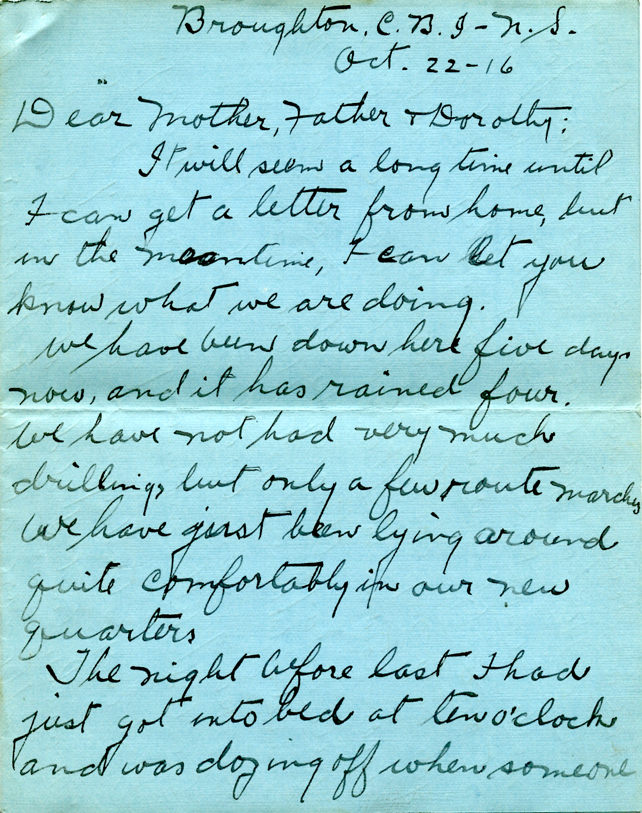 Broughton, C.B.I - N.S.
Oct. 22-16
Dear Mother, Father + Dorothy:
It will seem a long time until
I can get a letter from home, but
in the meantime, I can let you
know what we are doing.
We have been down here five days
now, and it has rained four.
We have not had very much
drilling, but only a few route marches
We have just been lying around
quite comfortably in our new
quarters
The night before last I had
just got into bed at ten o'clock
and was dozing off when someone